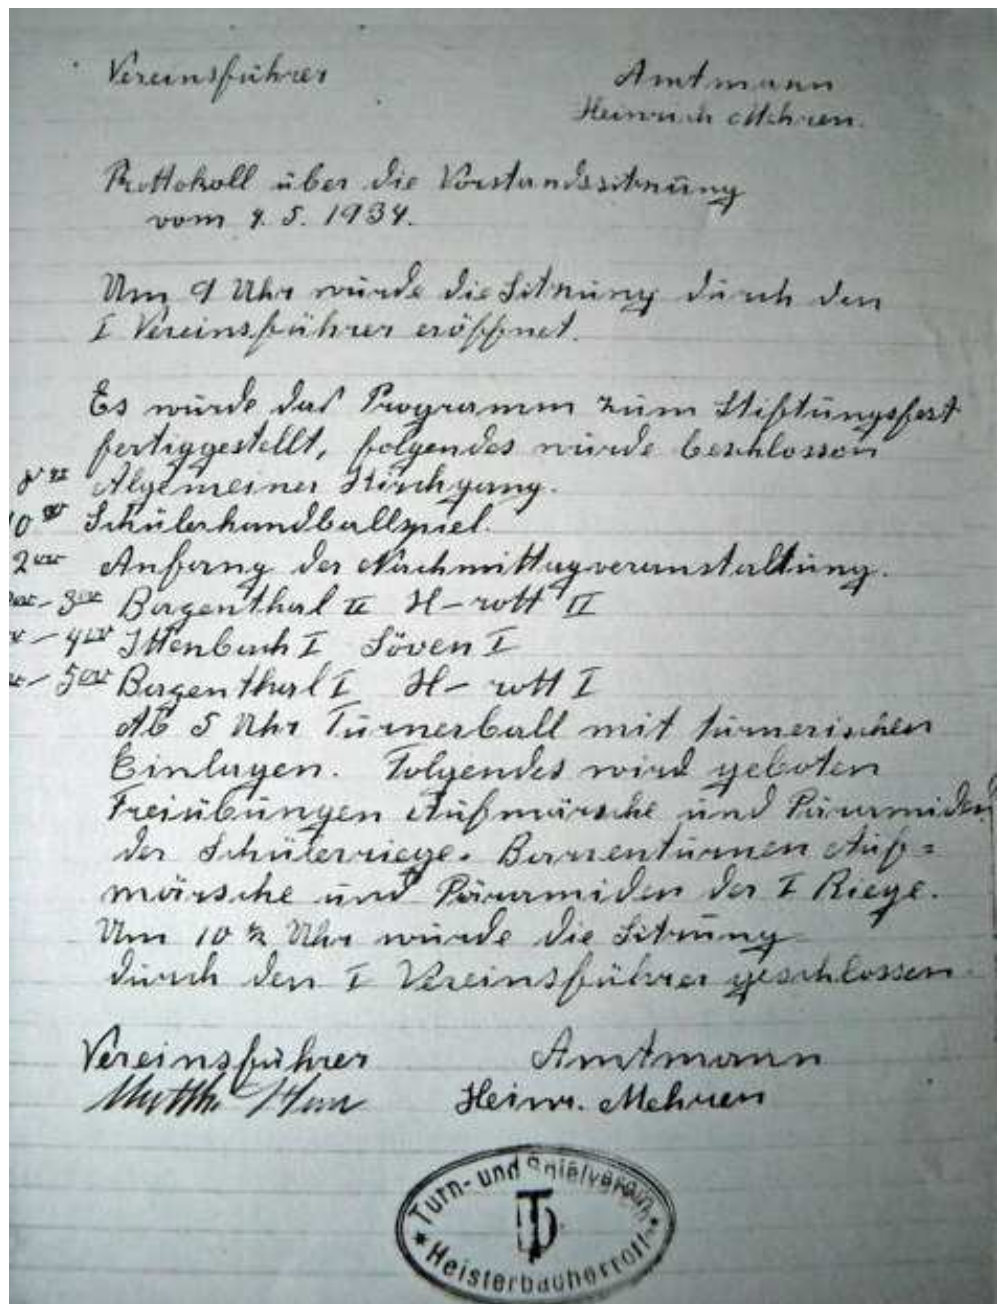 Vereinsführer Amtmann
Heinrich Mehren.
Prottokoll über die Vorstandssitzung
vom 9.5. 1934.
Um 9 Uhr wurde die Sitzung durch den
I Vereinsführer eröffnet.
Es wurde das Programm zum Stiftungsfest
fertiggestellt, folgendes wurde beschlossen
Algemeiner Kirchgang.
10 00 Schülerhandballspiel.
2 00 Anfang der Nachmittagveranstaltung.
- 3 00 Bergenthal II H-rott II
- 4 00 Ittenbach I Söven I
- 5 00 Bergenthal I H-rott I
Ab 5 Uhr Turnerball mit turnerischen
Einlagen. Folgendes wird geboten
Freiübungen Aufmärsche und Päramiden
der Schülerriege. Barrenturnen Auf=
märsche und Päramiden der I Riege.
Um 10 ½ Uhr wurde die Sitzung
durch den I Vereinsführer geschlossen.
Vereinsführer Amtmann
Heinr. Mehren
Turn- und Spielverein
Heisterbacherrott